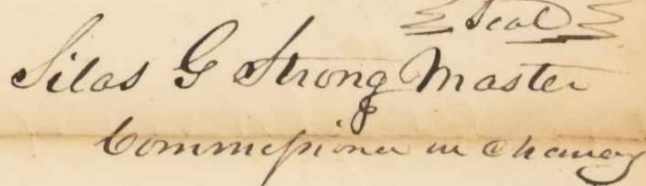 Seal
Silas G Strong Master
Commissioner in Chancery